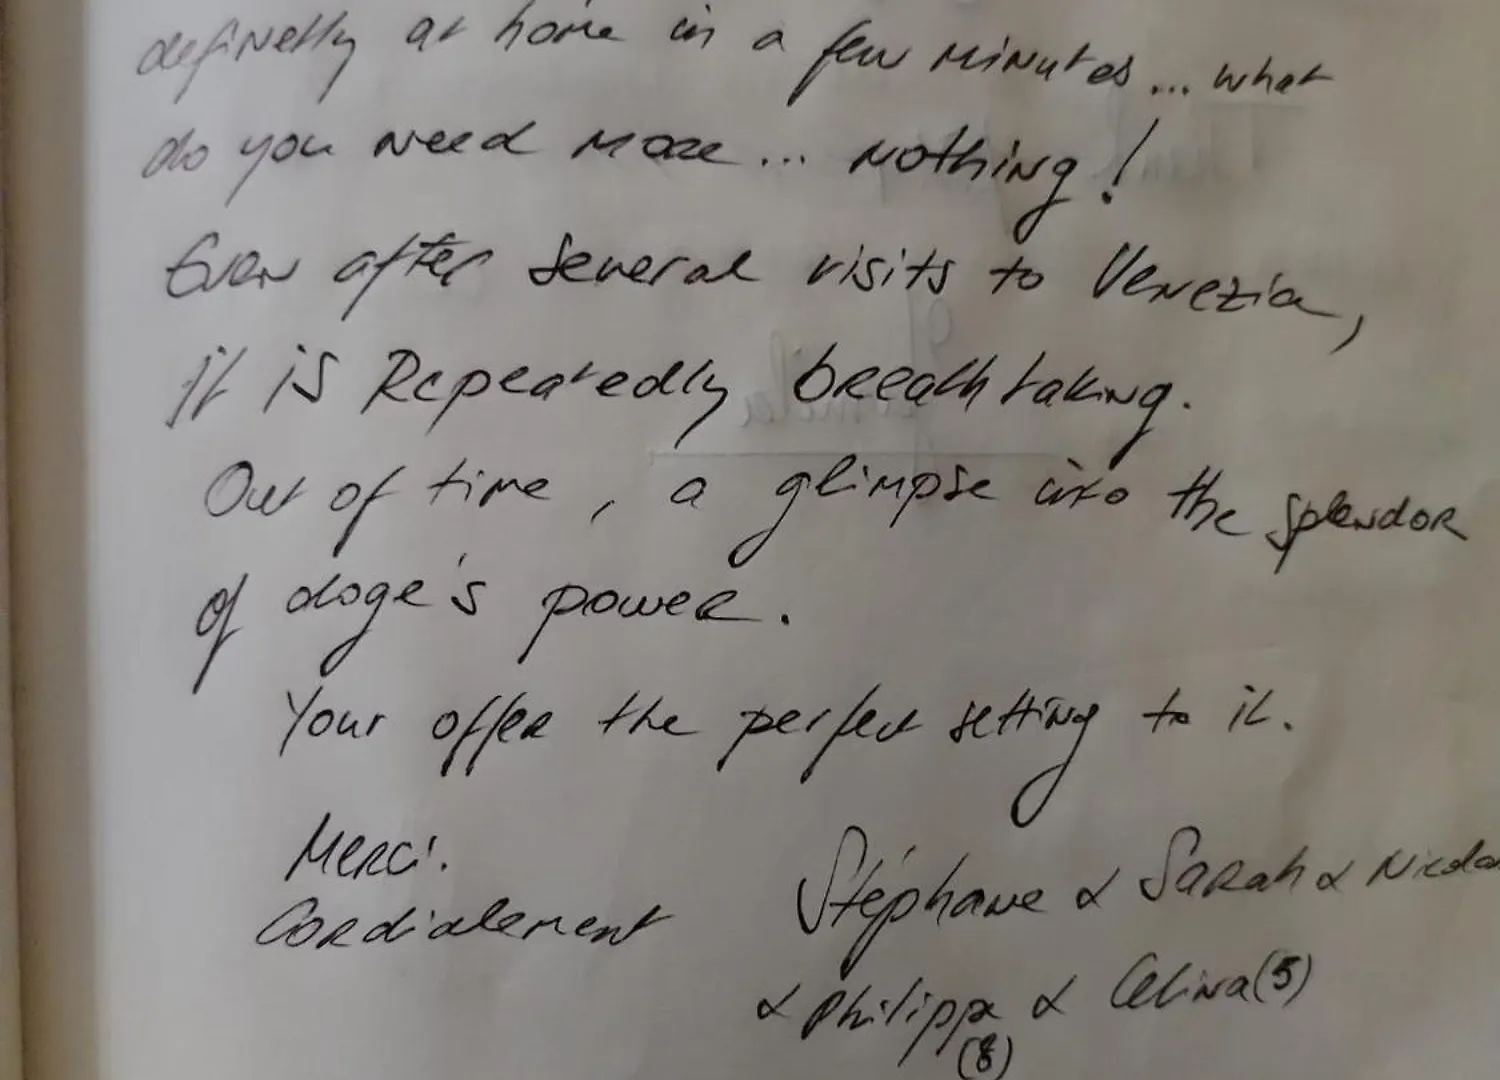 definetly at home in a few minutes... what
do you need more... nothing!
Even after several visits to Venezia,
it is Repeatedly breathtaking.
Out of time, a glimpse into the splendor
of doge's power.
Your offer the perfect setting to it.
Merci.
Cordialement
Stéphane & Sarah &
& Philippe & Celina (5)
(8)